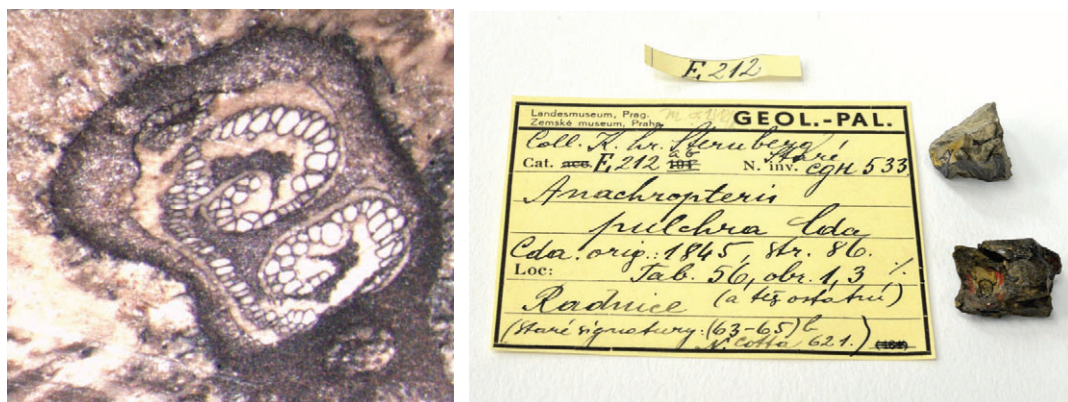 E, 212
Landesmuseum, Prag.
Zemské museum, Praha.
GEOL.-PAL.
Coll. K. hr. Sternberg
Cat. E, 212 a b N. inv. Staré cgH 533
Anachropteris
pulchra Cda
Cda. orig.: 1845, str. 86.
Loc: Tab. 56, obr. 1, 3
Radnice (a též ostatní)
(staré signatury: (63-65) b
N. Cotta 621.)